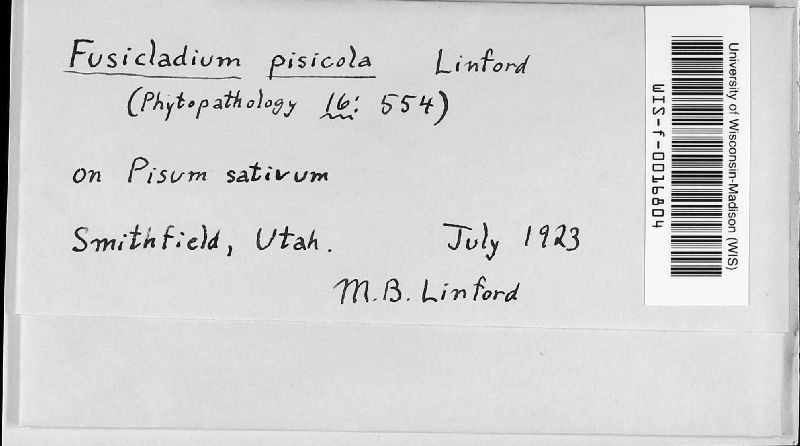 Fusicladium pisicola Linford
(Phytopathology 16: 554)
on Pisum sativum
Smithfield, Utah. July 1923
M.B. Linford
University of Wisconsin-Madison (WIS)
WIS-f-0016804